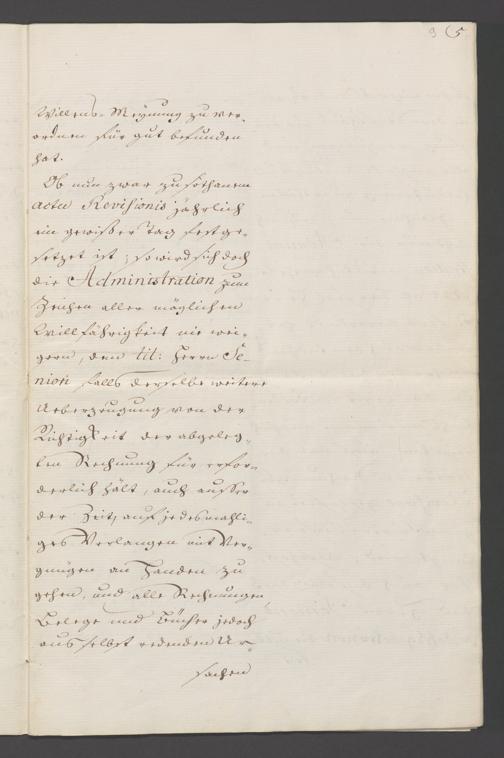 9 (5
Willens-Meynung zu ver-
ordnen für gut befunden
hat.
Ob nun zwar zu sothanem
actu Revisionis jährlich
ein gewisser Tag festge-
setzet ist; so wird sich doch
die Administration zum
Zeichen aller möglichen
Willfährigkeit nie wei-
gern, dem tit: Herrn Se-
niori falls derselbe weitere
Ueberzeugung von der
Richtigkeit der abgeleg-
ten Rechnung für erfor-
derlich hält, auch ausser
der Zeit, auf jedesmahli-
ges Verlangen mit Ver-
gnügen an Handen zu
gehen, und alle Rechnungen
Belege und Bücher jedoch
aus selbst redenden Ur-
sachen